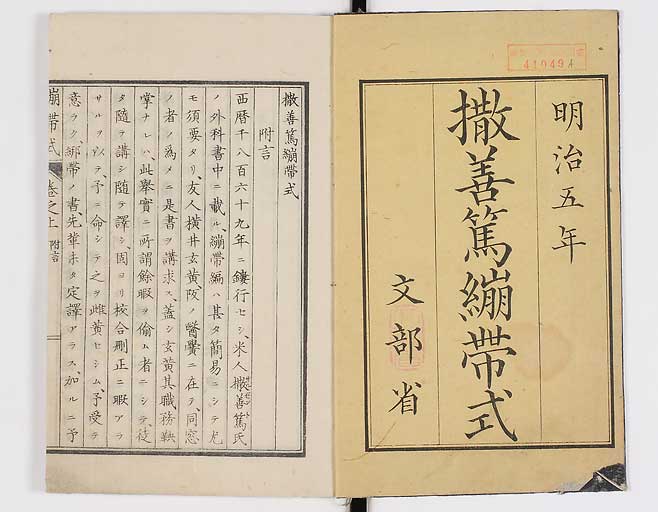 明治五年
撒善篤繃帶式
文部省
410494
撒善篤繃帶式
附言
西曆千八百六十九年ニ鏤行セシ、米人撒善篤氏
ノ外科書中ニ載ル、繃帶編ハ甚タ簡易ニシテ尤
モ須要タリ、友人橫井玄黄、阪ノ醫黌ニ在ヲ、同窓
ノ者ノ爲メニ是書ヲ講求ス、蓋シ玄黄其職務鞅
掌ナレハ、此擧實ニ所謂餘暇ヲ偷ム者ニシテ、徒
タ隨テ講シ隨テ譯シ、固ヨリ校合刪正ニ暇アラ
サルヲ以テ、予ニ命シテ之ヲ雌黄セシム、予受テ
意ラク繃帶ノ書、先輩未タ定譯アラス、加ルニ予
繃帶式
卷之上
附言